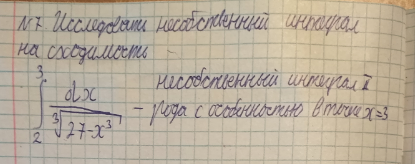 №7. Исследовать несобственный интеграл
на сходимость
$\int_{2}^{3} \frac{dx}{\sqrt[3]{27-x^3}}$ – несобственный интеграл II
рода с особенностью в точке x=3